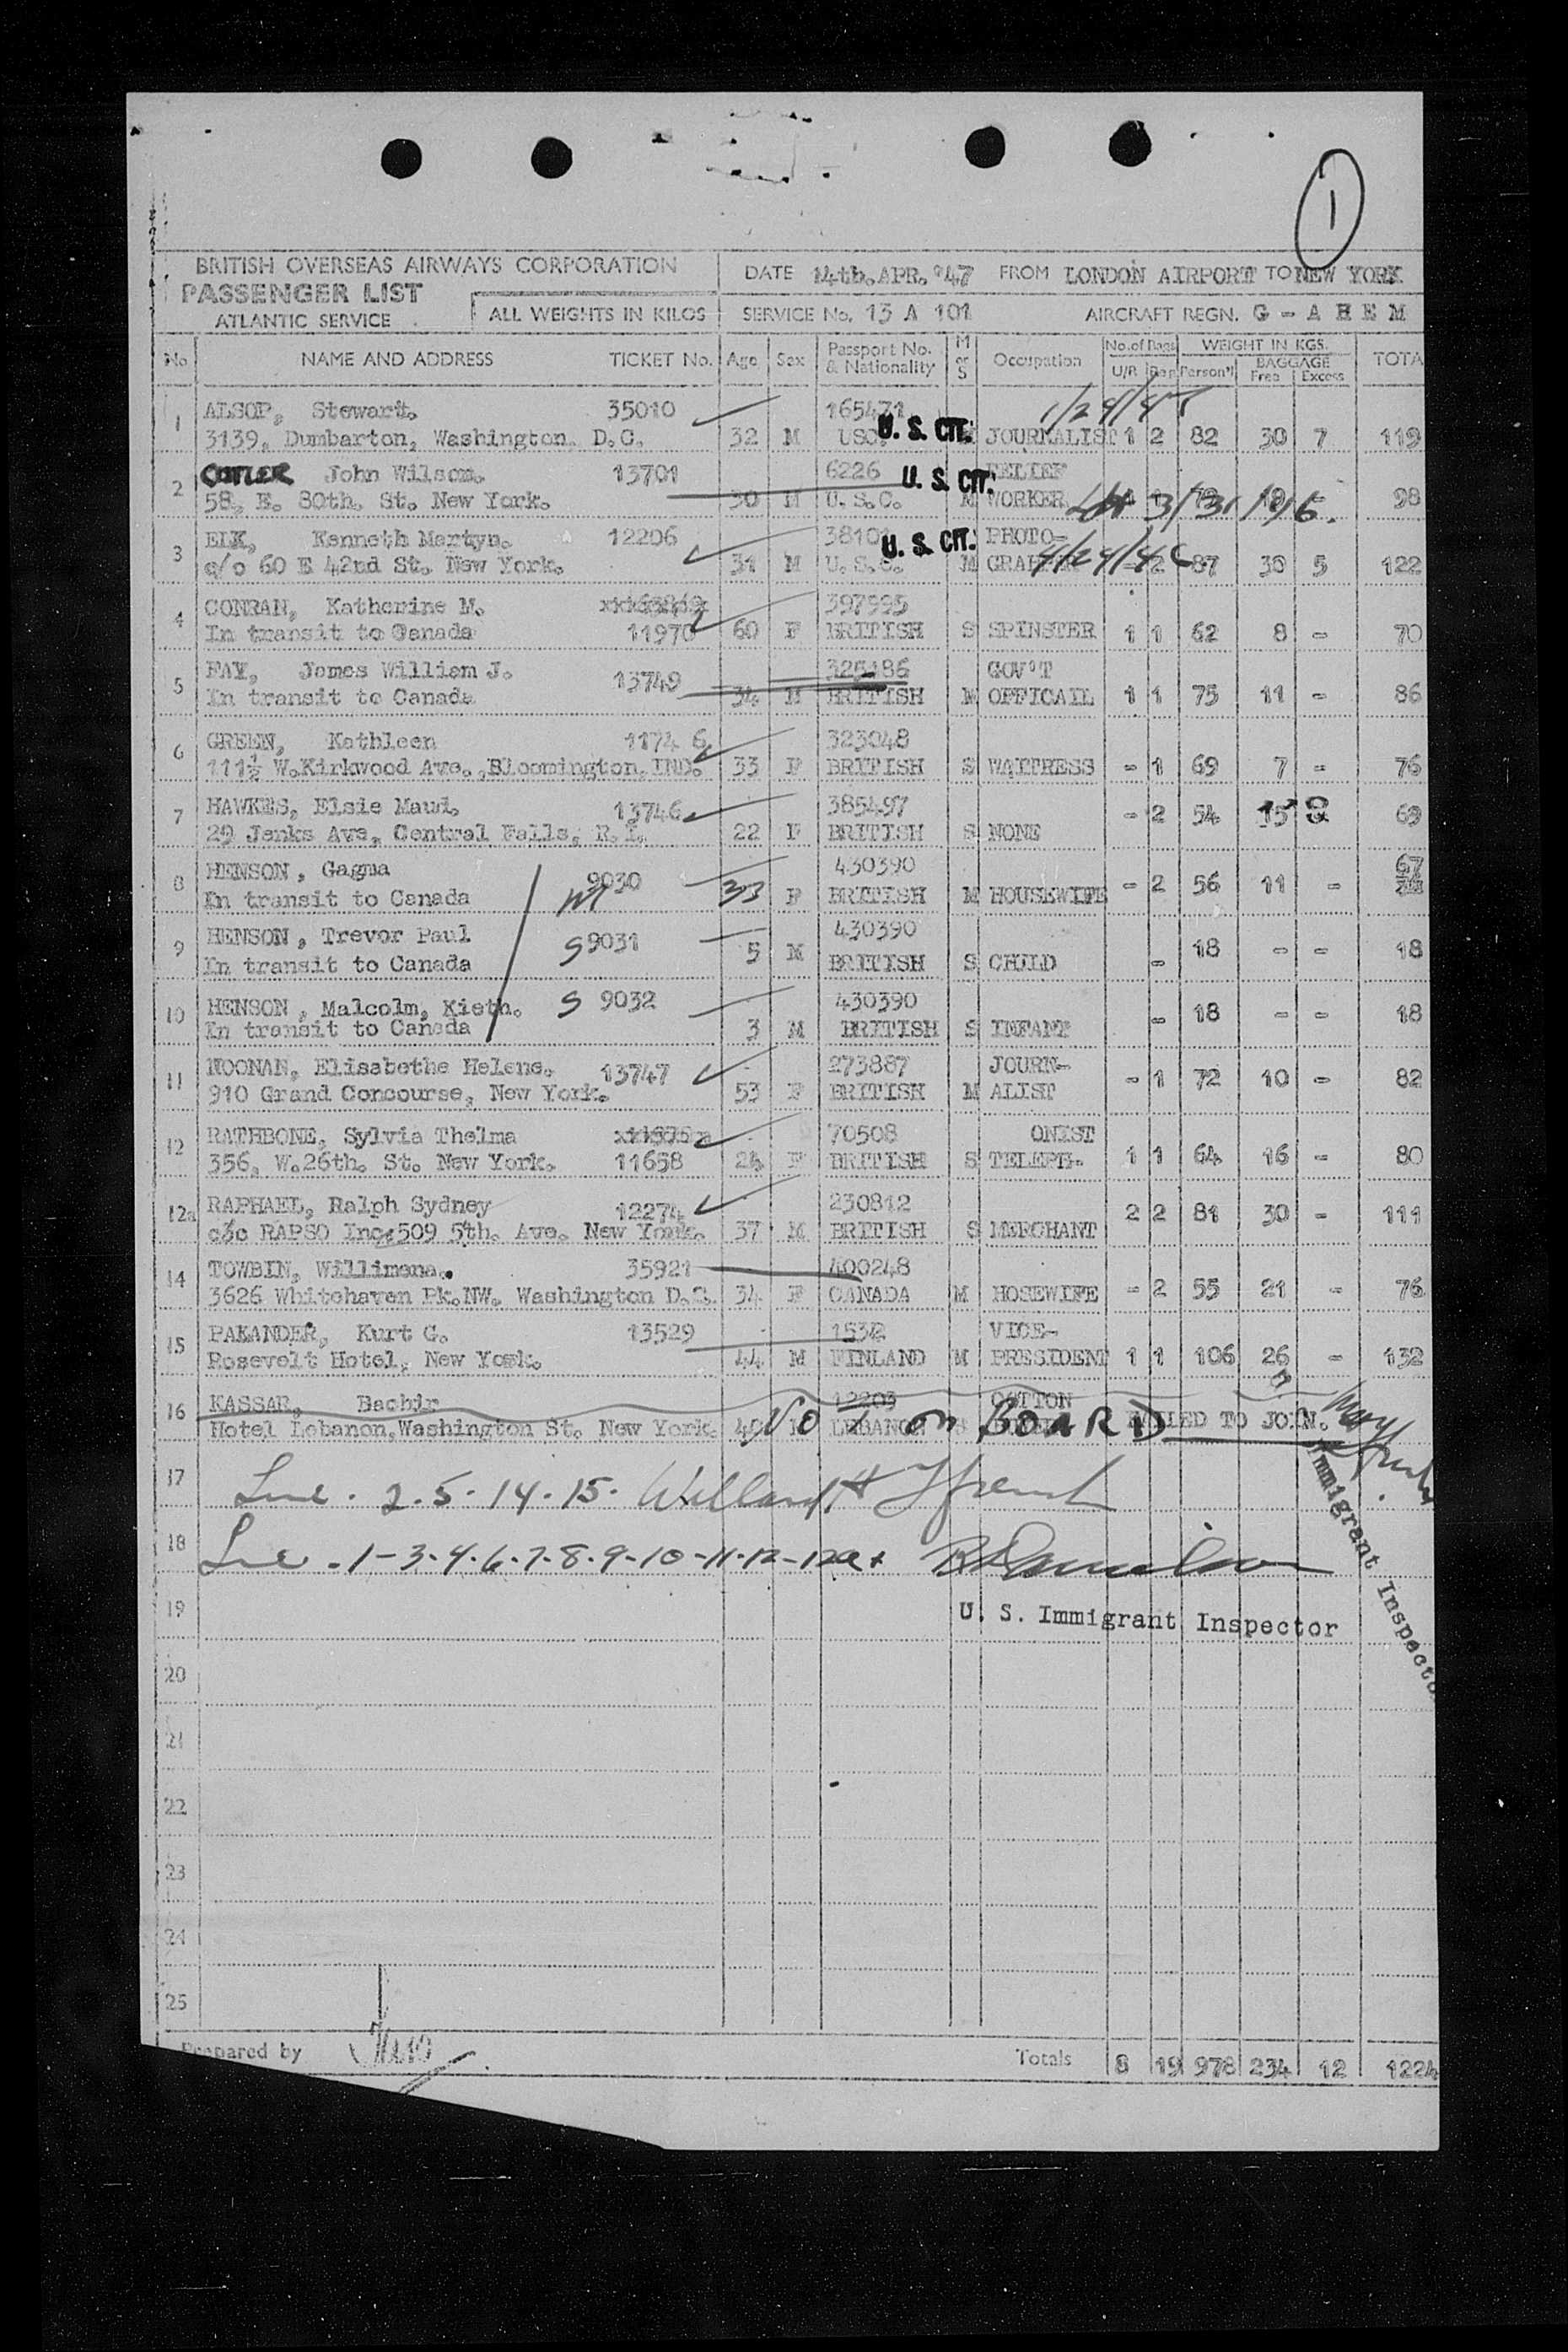 1
BRITISH OVERSEAS AIRWAYS CORPORATION
PASSENGER LIST
ATLANTIC SERVICE
ALL WEIGHTS IN KILOS
DATE 14th. APR. '47 FROM LONDON AIRPORT TO NEW YORK
SERVICE No. 13 A 101 AIRCRAFT REGN. G - A H E M
No NAME AND ADDRESS TICKET No. Age Sex Passport No. & Nationality M or S Occupation No. of Bags U/R Reg WEIGHT IN KGS. Person'l BAGGAGE Free Excess TOTA
1 ALSOP, Stewart. 35010 165471
3139, Dumbarton, Washington D.C. 32 M USC. U. S. CIT. JOURNALIST 1 2 82 30 7 119
2 CUTLER John Wilson. 13701 6226 U. S. CIT. RELIEF
58, E. 80th. St. New York. 30 M U.S.C. M WORKER 3/31/46. 98
3 ELK, Kenneth Martyn. 12206 3810 U. S. CIT. PHOTO-
c/o 60 E 42nd St. New York. 31 M U.S.C. M 2 87 30 5 122
4 CONRAN, Katherine M. 397995
In transit to Canada 11970 60 F BRITISH S SPINSTER 1 1 62 8 - 70
5 FAY, James William J. 13749 GOV'T
In transit to Canada 34 M BRITISH M OFFICAIL 1 1 75 11 - 86
6 GREEN, Kathleen 1174 6 323048
111½ W.Kirkwood Ave.,Bloomington,IND. 33 F BRITISH S WAITRESS - 1 69 7 - 76
7 HAWKES, Elsie Maud. 13746 385497
29 Jenks Ave, Central Falls, R.I. 22 F BRITISH S NONE - 2 54 15 69
8 HENSON, Gagma 9030 430390 67
In transit to Canada M 33 F BRITISH M HOUSEWIFE - 2 56 11 -
9 HENSON, Trevor Paul S 9031 430390
In transit to Canada 5 M BRITISH S CHILD - 18 - - 18
10 HENSON, Malcolm, Kieth. S 9032 430390
In transit to Canada 3 M BRITISH S INFANT - 18 - - 18
11 NOONAN, Elisabethe Helene. 13747 273887 JOURN-
910 Grand Concourse, New York. 53 F BRITISH M ALIST - 1 72 10 - 82
12 RATHBONE, Sylvia Thelma 70508 ONIST
356, W.26th. St. New York. 11658 F BRITISH S TELEPH- 1 1 64 16 - 80
12a RAPHAEL, Ralph Sydney 12274 230812
c/o RAPSO Inc. 509 5th. Ave. New York. 37 M BRITISH S MERCHANT 2 2 81 30 - 111
14 TOWBIN, Willimena. 35921 400248
3626 Whitehaven Pk.NW. Washington D.C. 34 F CANADA M HOSEWIFE - 2 55 21 - 76
15 PAKANDER, Kurt G. 13529 VICE-
Rosevelt Hotel, New York. 44 M FINLAND M PRESIDENT 1 1 106 26 - 132
16 KASSAR, Bachir 12203 COTTON
Hotel Lebanon,Washington St. New York. LEBANON FAILED TO JOIN.
No on BOARD
17 Line . 2.5.14.15.
18 Line .1-3.4.6.7.8.9-10-11-12-12a
U. S. Immigrant Inspector
Immigrant Inspecto
19
20
21
22
23
24
25
Prepared by Totals 8 19 978 234 12 1224